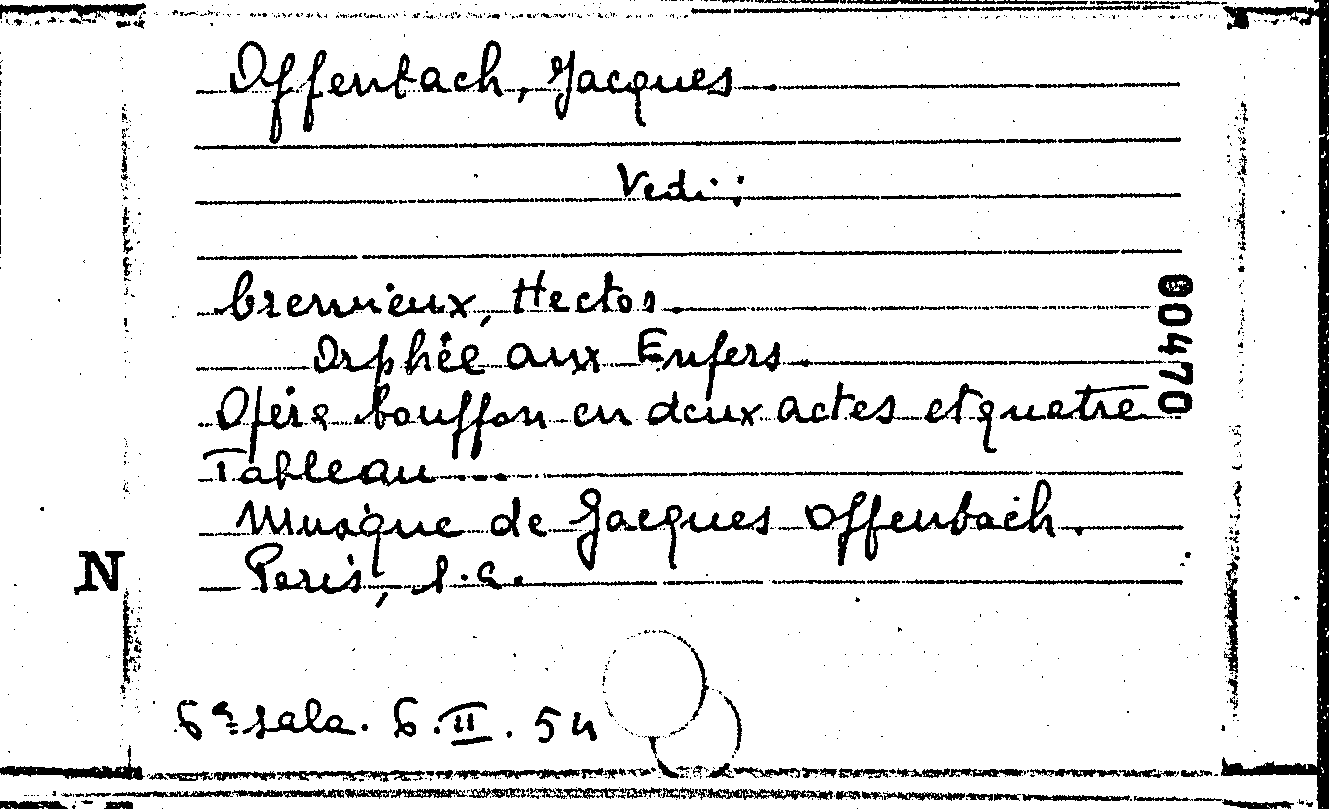 Offenbach, Jacques.
Vedi:
Cremieux, Hector.
Orphée aux Enfers.
Opéra bouffon en deux actes et quatre
Tableau...
Musique de Jacques Offenbach.
Paris, s.a.
00470
N
6ª sala. 6.II.54